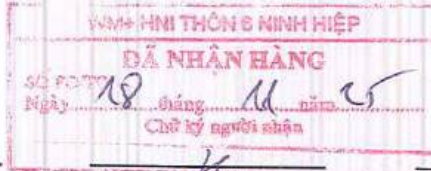 WM+ HNI THÔN 6 NINH HIỆP
ĐÃ NHẬN HÀNG
SỐ PO/TO
Ngày 18 tháng 11 năm 25
Chữ ký người nhận